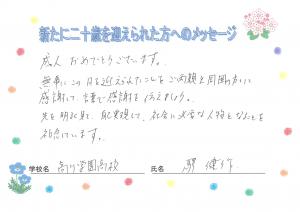 新たに二十歳を迎えられた方へのメッセージ
成人 おめでとうございます。
無事にこの日を迎えられたことをご両親と周囲の方に
感謝して、言葉で感謝を伝えましょう。
先を明るく見て、
社会に必要な人物となることを
祈念しています。
学校名 高川学園高校 氏名